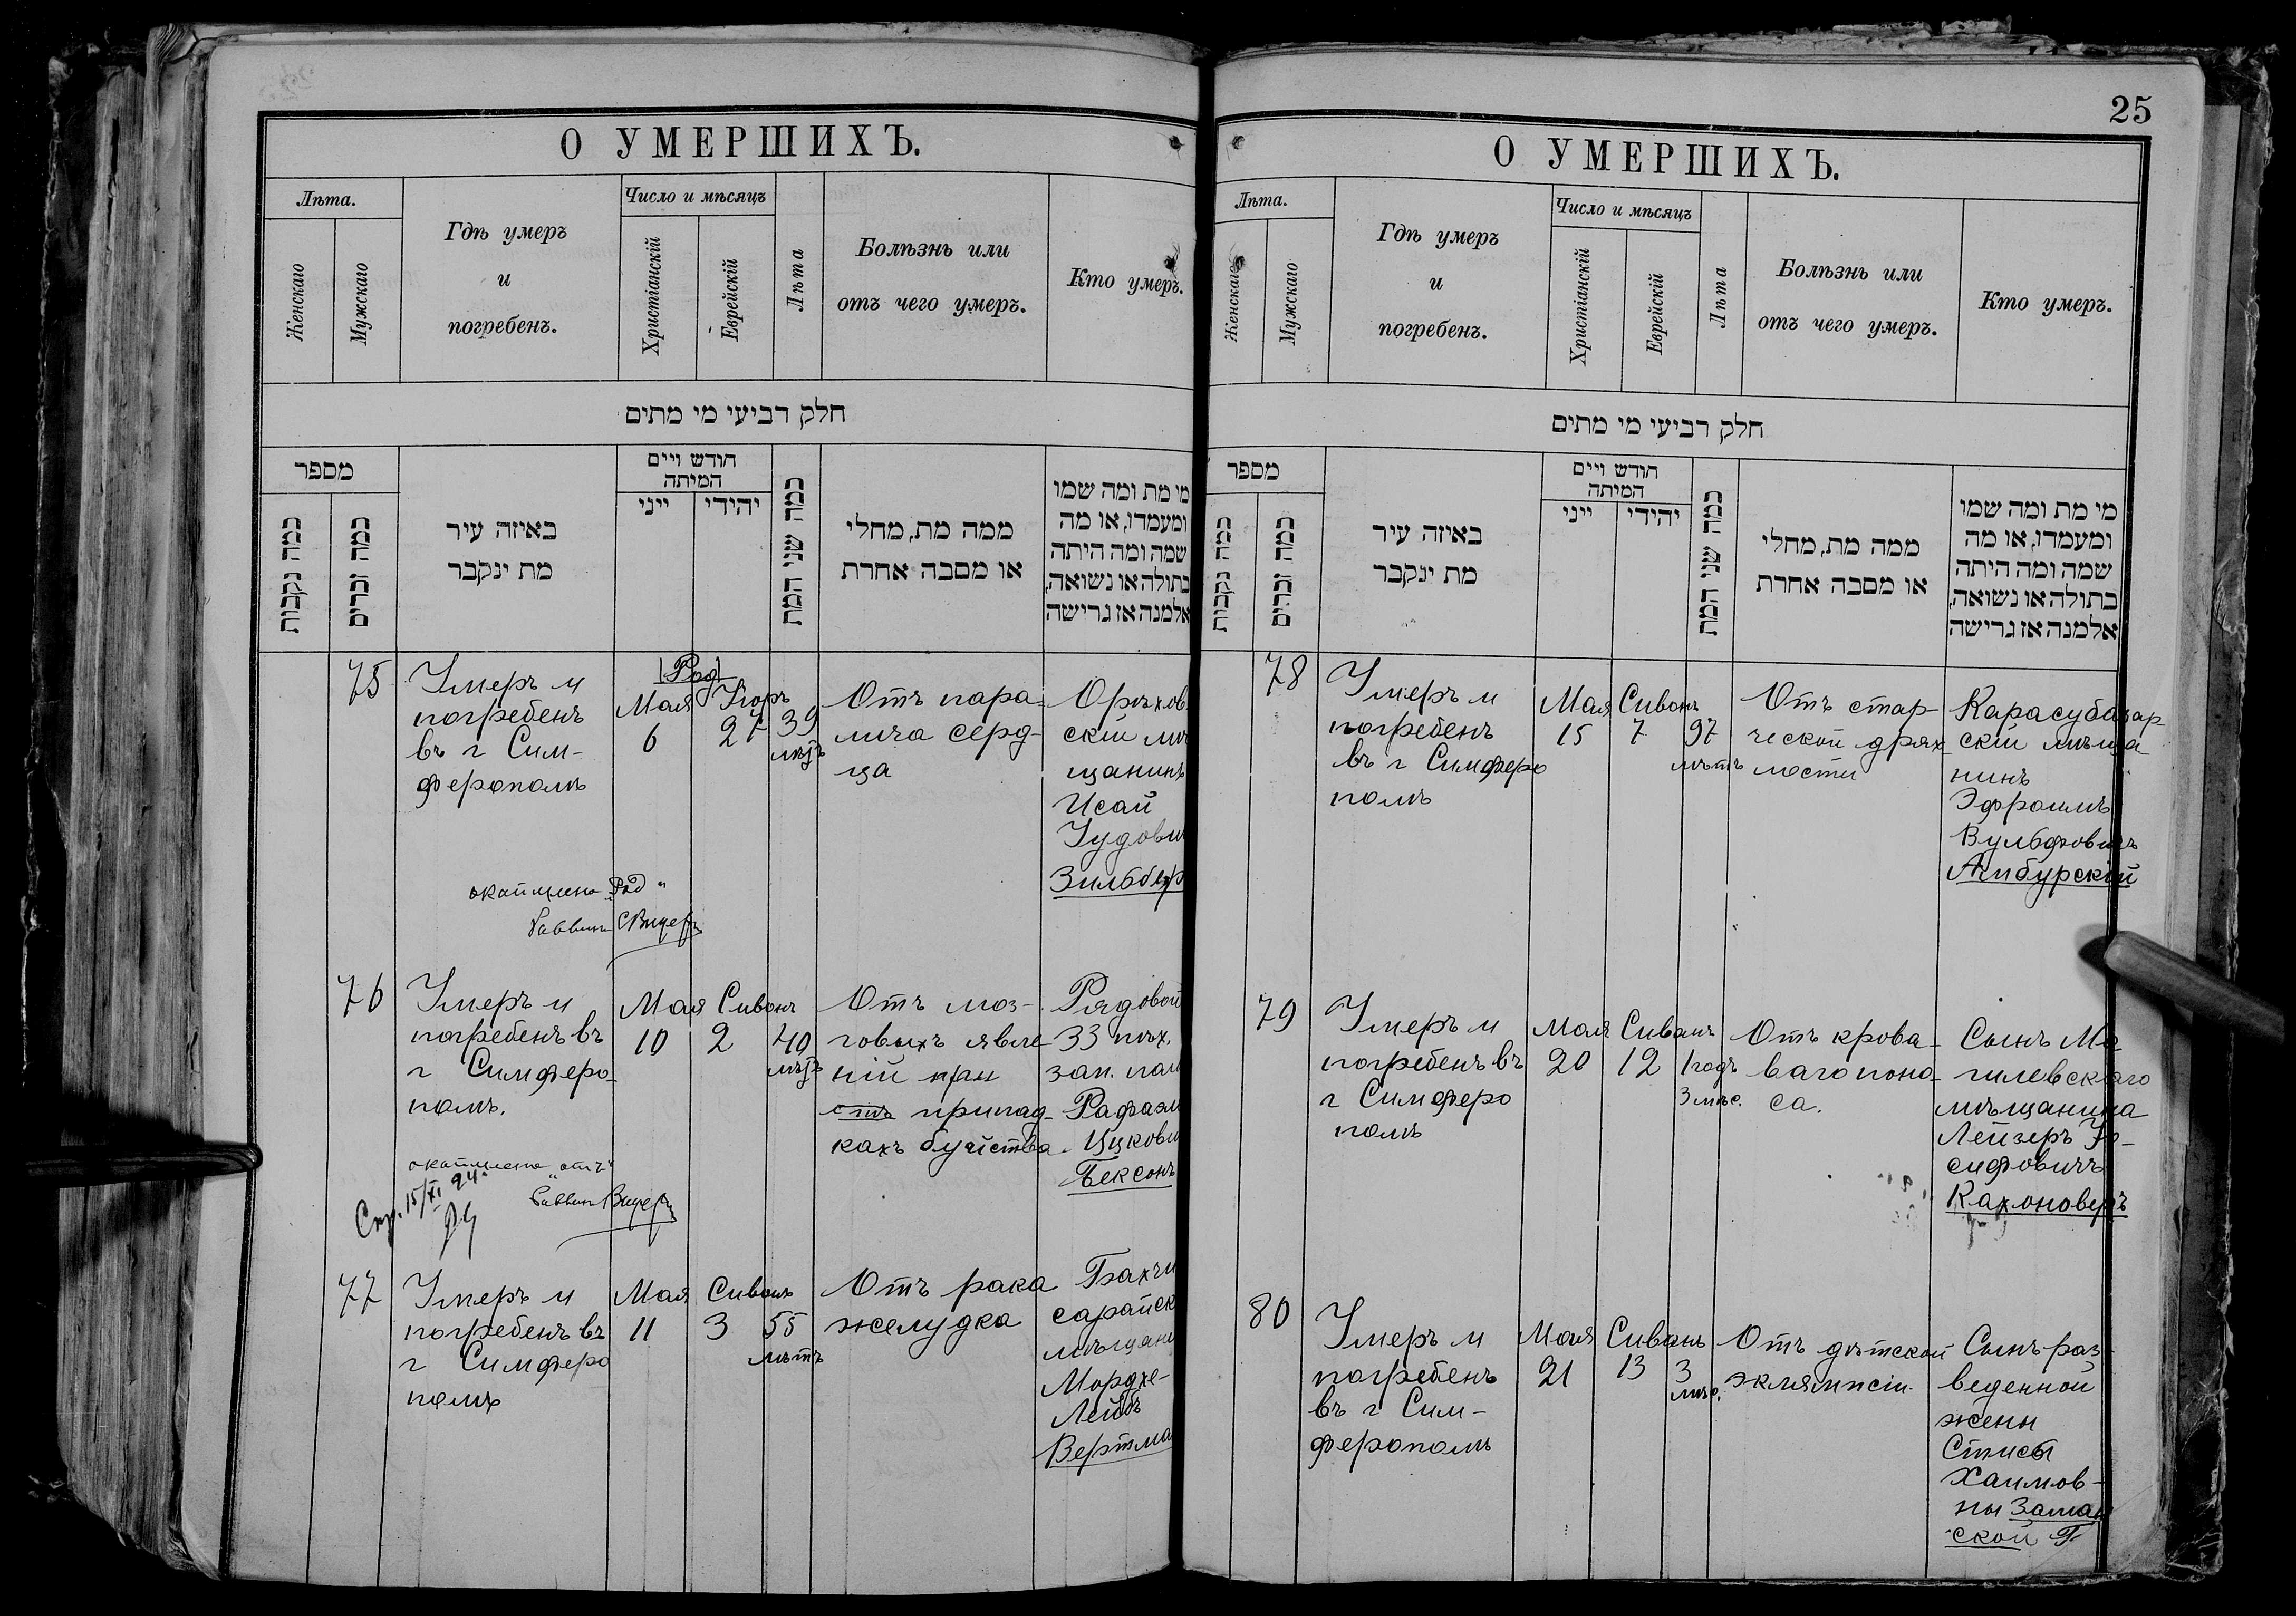 О УМЕРШИХЪ.
Лѣта.
Женскаго
Мужскаго
Гдѣ умеръ
и
погребенъ.
Число и мѣсяцъ
Христіанскій
Еврейскій
Лѣта
Болѣзнь или
отъ чего умеръ.
Кто умеръ.
חלק רביעי מי מתים
מספר
כמה נקבות
כמה זכרים
באיזה עיר
מת ינקבר
חודש ויים
המיתה
ייני
יהידי
כמה שני המת
ממה מת, מחלי
או מסבה אחרת
מי מת ומה שמו
ומעמדו, או מה
שמה ומה היתה
בתולה או נשואה,
אלמנה אז גרישה
75
Умеръ и
погребенъ
въ г Сим-
ферополѣ
Мая
6
27
39
лѣтъ
Отъ пара-
лича серд-
ца
Орѣхов
скій мѣ
щанинъ
Исай
Іудови
Зильбер
Раввинъ
76
Умеръ и
погребенъ въ
г Симферо-
полѣ.
Мая
10
Сиванъ
2
40
лѣтъ
Отъ моз-
говыхъ явле-
ній при
припад-
кахъ буйства.
Рядовой
33 пѣх.
зап. пол
Рафаэл
Ицкови
Бексонъ
Раввинъ
77
Умеръ и
погребенъ въ
г Симферо
полѣ
Мая
11
Сиванъ
3
55
лѣтъ
Отъ рака
желудка
Бахчи
сарайск
мѣщани
Мордхе-
Лейбъ
Вертма
25
О УМЕРШИХЪ.
Лѣта.
Женскаго
Мужскаго
Гдѣ умеръ
и
погребенъ.
Число и мѣсяцъ
Христіанскій
Еврейскій
Лѣта
Болѣзнь или
отъ чего умеръ.
Кто умеръ.
חלק רביעי מי מתים
מספר
כמה נקבות
כמה זכרים
באיזה עיר
מת ינקבר
חודש ויים
המיתה
ייני
יהידי
כמה שני המת
ממה מת, מחלי
או מסבה אחרת
מי מת ומה שמו
ומעמדו, או מה
שמה ומה היתה
בתולה או נשואה,
אלמנה אז גרישה
78
Умеръ и
погребенъ
въ г Симферо
полѣ
Мая
15
Сиванъ
7
97
лѣтъ
Отъ стар-
ческой дрях
лости
Карасубазар-
скій мѣща
нинъ
Эфроимъ
Вульфовичъ
Амбурскій
79
Умеръ и
погребенъ въ
г Симферо
полѣ
Мая
20
Сиванъ
12
1 годъ
3 мѣс.
Отъ крова-
ваго поно-
са.
Сынъ Мо
гилевскаго
мѣщанина
Лейзеръ Іо-
сифовичъ
Кахановеръ
80
Умеръ и
погребенъ
въ г Сим-
ферополѣ
Мая
21
Сиванъ
13
3
мѣс.
Отъ дѣтской
эклямпсіи.
Сынъ раз-
веденной
жены
Хаимов-
ны Заман
ской